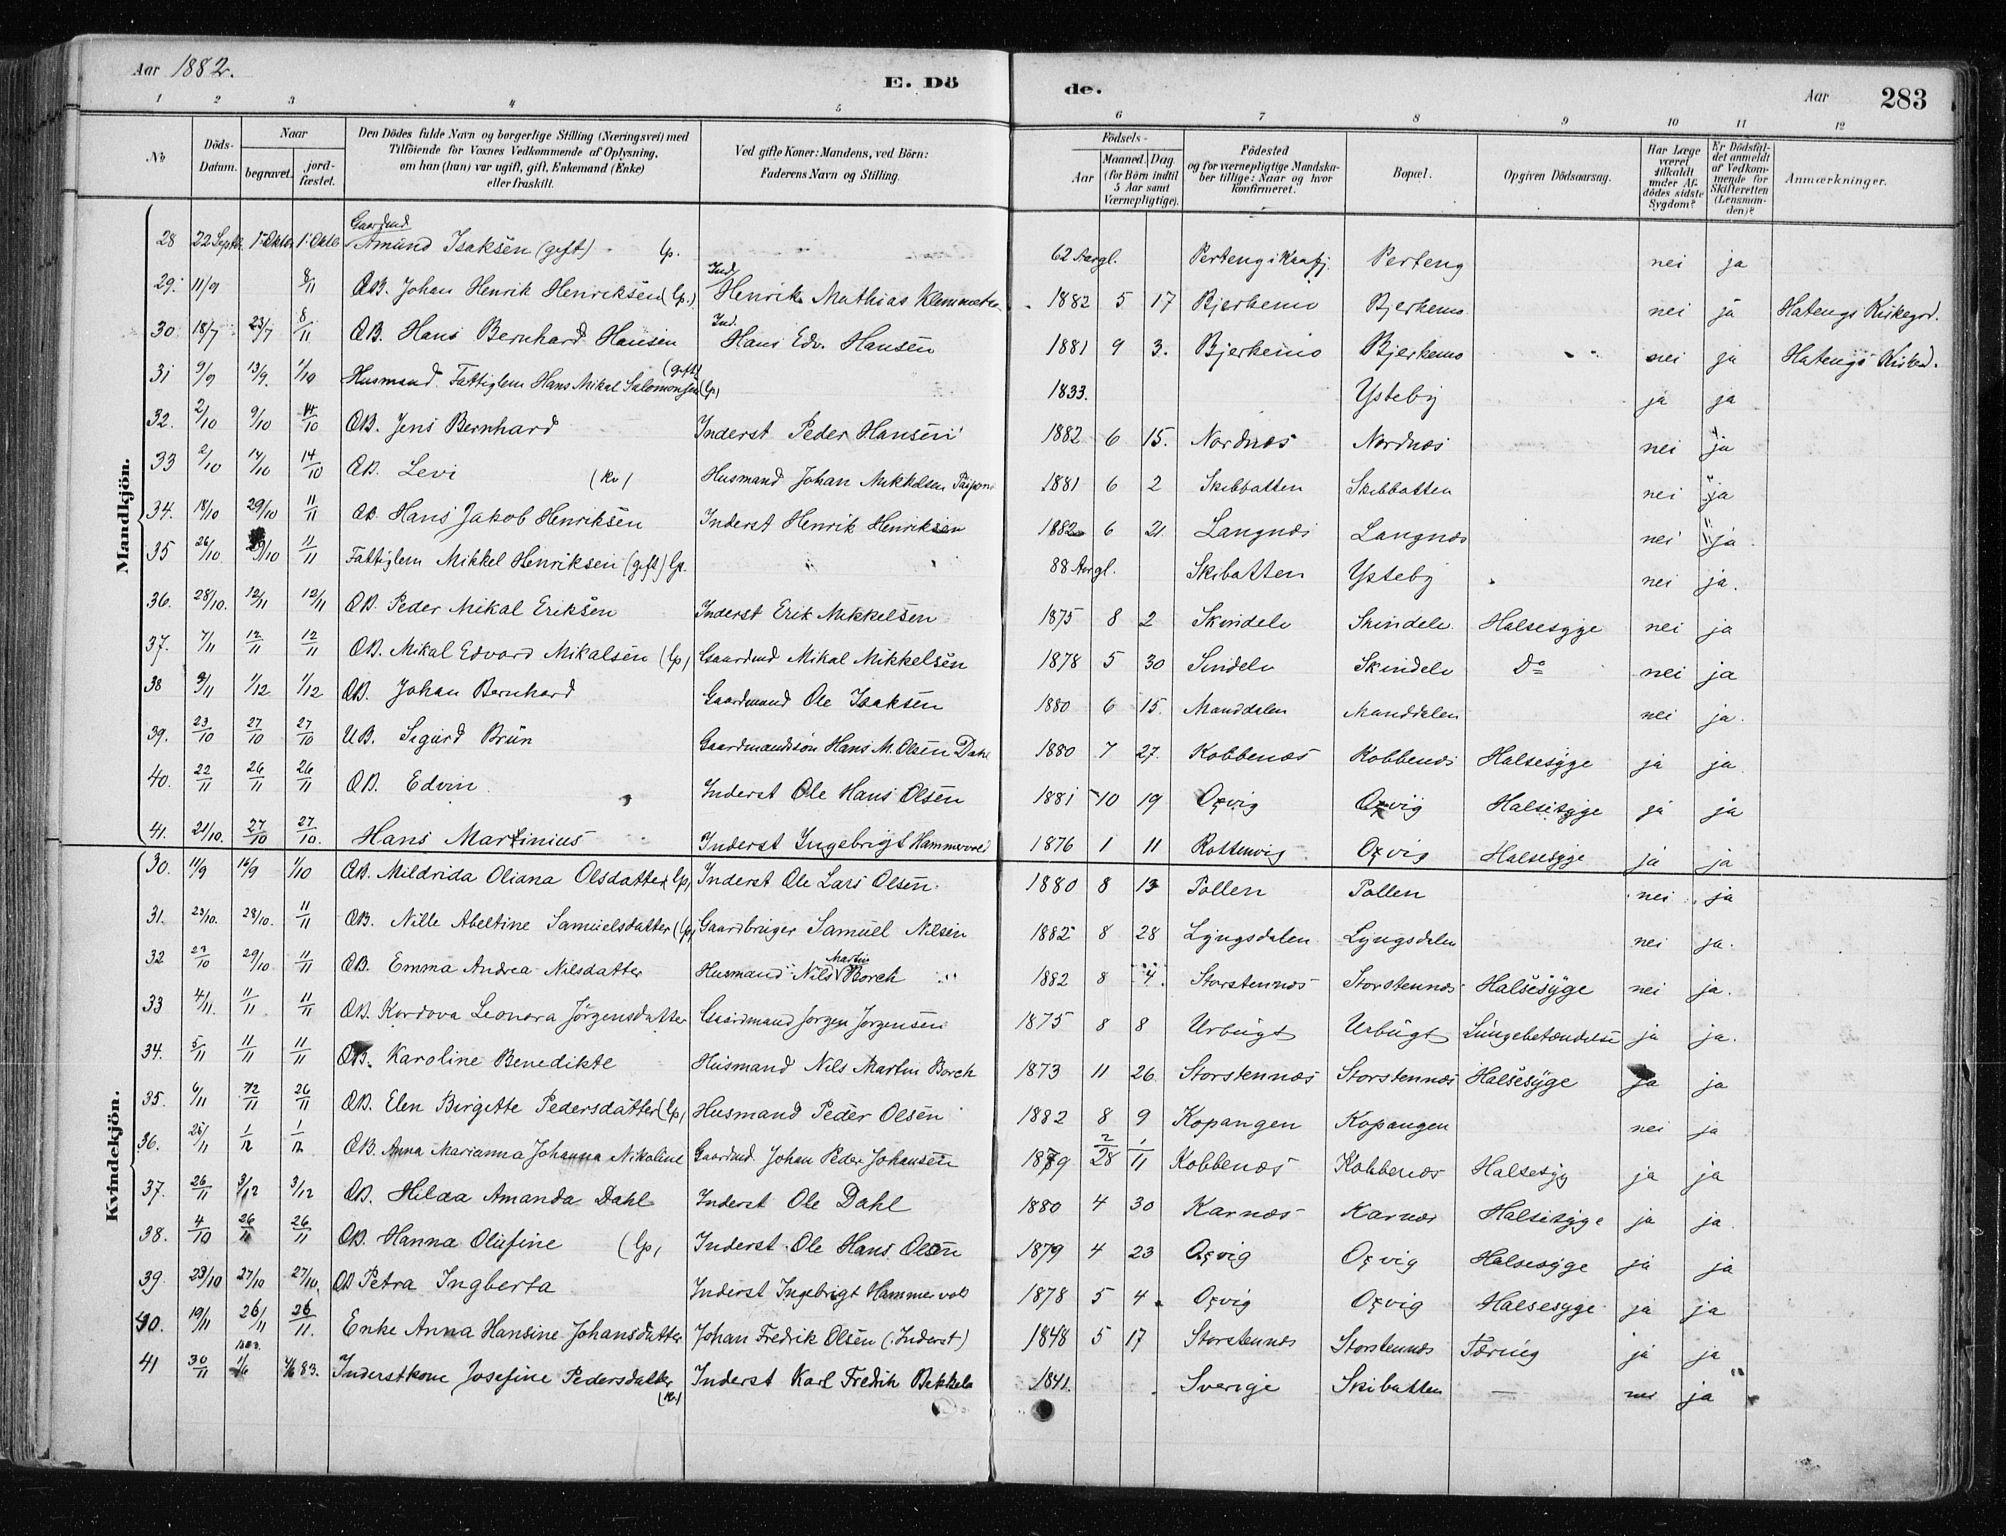 Aar 1882. E. Dö de. Aar 283
1 2 3 4 5 6 7 8 9 10 11 12
No Döds-Datum. Naar begravet. jord-fæstet. Den Dödes fulde Navn og borgerlige Stilling (Næringsvei) med Tilföiende for Voxnes Vedkommende af Oplysning, om han (hun) var ugift, gift, Enkemand (Enke) eller fraskilt. Ved gifte Koner: Mandens, ved Börn: Faderens Navn og Stilling. Födsels- Aar Maaned. Dag (for Börn indtil 5 Aar samt Værnepligtige). Födested og for værnepligtige Mandskaber tillige: Naar og hvor konfirmeret. Bopæl. Opgiven Dödsaarsag. Har Læge været tilkaldt under Afdödes sidste Sygdom? Er Dödsfaldet anmeldt af Vedkommende for Skifteretten (Lensmanden)? Anmærkninger.
Mandkjön.
28 22 Septb. 1 Oktb. 1 Oktb. Gaardmd Amund Isaksen (gift) Lp. 62 Aar gl. Perteng i Kaafj. Perteng nei ja
29. 11/9 8/11 ÆB. Johan Henrik Henriksen (Lp.) Ind. Henrik Mathias Klemmetsen 1882 5 17 Bjerkemo Bjerkemo nei ja Hatengs Kirkegrd.
30. 18/7 23/7 8/11 ÆB. Hans Bernhard Hansen Ind. Hans Edv. Hansen 1881 9 3. Bjerkemo Bjerkemo nei ja Hatengs
31 9/9 13/9. 1/10 Husmand Fattiglem Hans Mikal Salomonsen (gift) (Lp) 1833. Ysteby ja ja
32. 2/10 9/10 14/10 ÆB. Jens Bernhard Inderst Peder Hansen 1882 6 15. Nordnæs Nordnæs nei ja
33 2/10 14/10 14/10 ÆB. Levi (Kv) Husmand Johan Mikkelsen 1881 6 2 Skibbotten Skibbotten nei ja
34. 18/10 29/10 11/11 ÆB. Hans Jakob Henriksen Inderst Henrik Henriksen 1882 6 21 Langnæs Langnæs nei ja
35 26/10 29/10 11/11 Fattiglem Mikkel Henriksen (gift) Lp. 88 Aar gl. Skibotten Ysteby nei ja.
36. 28/10. 12/11 12/11 ÆB. Peder Mikal Eriksen Inderst Erik Mikkelsen 1875 8 2 Skindelv Skindelv Halsesyge nei ja
37. 7/11 12/11 12/11 ÆB. Mikal Edvard Mikalsen (Lp) Gaardmd Mikal Mikkelsen 1878 5 30 Sindelv Skindelv Do nei ja
38 9/11 1/12 1/12 ÆB. Johan Bernhard Gaardmand Ole Isaksen 1880 6 15. Manddalen Manddalen nei ja.
39. 23/10 27/10 27/10 UB. Sigurd Brün Gaardmandssøn Hans M. Olsen Dahl 1880 7 27. Kobbenæs Kobbenæs Halsesyge ja ja
40. 22/11 26/11 26/11 ÆB. Edvin Inderst Ole Hans Olsen 1881 10 19 Oxvig Oxvig Halsesyge ja ja
41. 21/10. 27/10 27/10. Hans Martinius Inderst Ingebrigt Hammervold 1876 1 11 Rottenvig Oxvig Halsesyge ja ja
Kvindekjön.
30. 11/9 16/9 1/10 ÆB. Mildrida Oliana Olsdatter (Lp) Inderst Ole Lars Olsen 1880 8 13 Pollen Pollen nei ja
31. 23/10. 28/10. 11/11 ÆB. Nille Abeltine Samuelsdatter (Lp) Gaardbruger Samuel Nilsen 1882 8 28 Lyngsdalen Lyngsdalen nei ja.
32 23/10 29/10 11/11 ÆB. Emma Andrea Nilsdatter Husmand Nils Martin Borch 1882 8 4. Storstennæs Storstennæs Halsesyge nei ja.
33 4/11 11/11 11/11 ÆB. Kordova Leonora Jörgensdatter Gaardmand Jørgen Jørgensen 1875 8 8 Urbugt Urbugt Lungebetændelse ja ja.
34. 5/11 11/11 11/11 ÆB. Karoline Benedikte Husmand Nils Martin Borch 1873 11 26 Storstennæs Storstennæs Halsesyge ja ja
35. 6/11 12/11 26/11 ÆB. Elen Birgitte Pedersdatter (Lp) Husmand Peder Olsen 1882 8 9 Kopangen Kopangen nei ja
36. 25/11 1/12 1/12 ÆB. Anna Marianna Johanna Nikoline Gaardmd. Johan Peder Johansen 1879 2/28 1/11 Kobbenæs Kobbenæs Halsesyg ja ja
37. 26/11 3/12 3/12 ÆB. Hilda Amanda Dahl Inderst Ole Dahl 1880 4 30 Karnæs Karnæs Halsesyge ja ja
38. 4/10 26/11 26/11 ÆB. Hanna Olufine (Lp) Inderst Ole Hans Olsen 1879 4 23 Oxvig Oxvig Halsesyge ja ja
39 23/10 27/10 27/10. ÆB Petra Ingberta Inderst Ingebrigt Hammervold 1878 5 4 Oxvig Oxvig Halsesyge ja ja
40. 19/11 26/11 26/11. Enke Anna Hansine Johansdatter Johan Fredrik Olsen (Inderst) 1848 5 17 Storstennæs Storstennæs Tæring ja ja
41 30/11 4/6 83. Inderstkone Josefine Pedersdatter (Kv) Inderst Karl Fredrik Bakkela 1841. Sverige Skibotten — nei ja